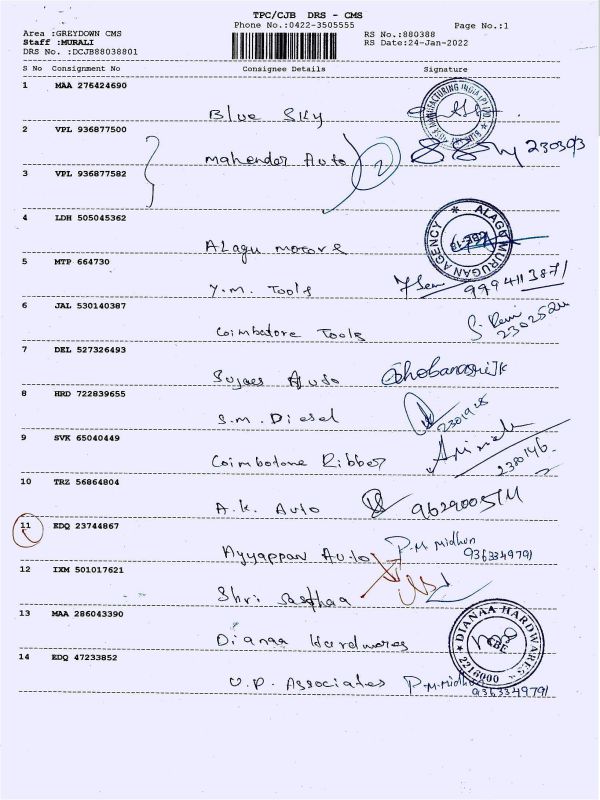 TPC/CJB DRS - CMS
Phone No.:0422-3505555 Page No.:1
Area :GREYDOWN CMS RS No.:880388
Staff :MURALI RS Date:24-Jan-2022
DRS No. :DCJB88038801
S No Consignment No Consignee Details Signature
1 MAA 276424690
Blue Sky
2 VPL 936877500
Mahender Auto 2 230303
3 VPL 936877582
4 LDH 505045362
Alagu motors ALAGU MURUGAN AGENCY
5 MTP 664730
Y.M. Tools 9994113871
6 JAL 530140387
Coimbatore Tools
7 DEL 527326493
Auto
8 HRD 722839655
S.M. Diesel
9 SVK 65040449
Coimbatore Ribber 2300146
10 TRZ 56864804
A.K. Auto
11 EDQ 23744867
Ayyappan Auto P.M. Midhun
9363349791
12 IXM 501017621
Shri Sasthaa
13 MAA 286043390
Dianaa Hardwares DIANAA HARDWARES CBE 2216000
14 EDQ 47233852
U.P. Associates P.M. Midhun
9363349791